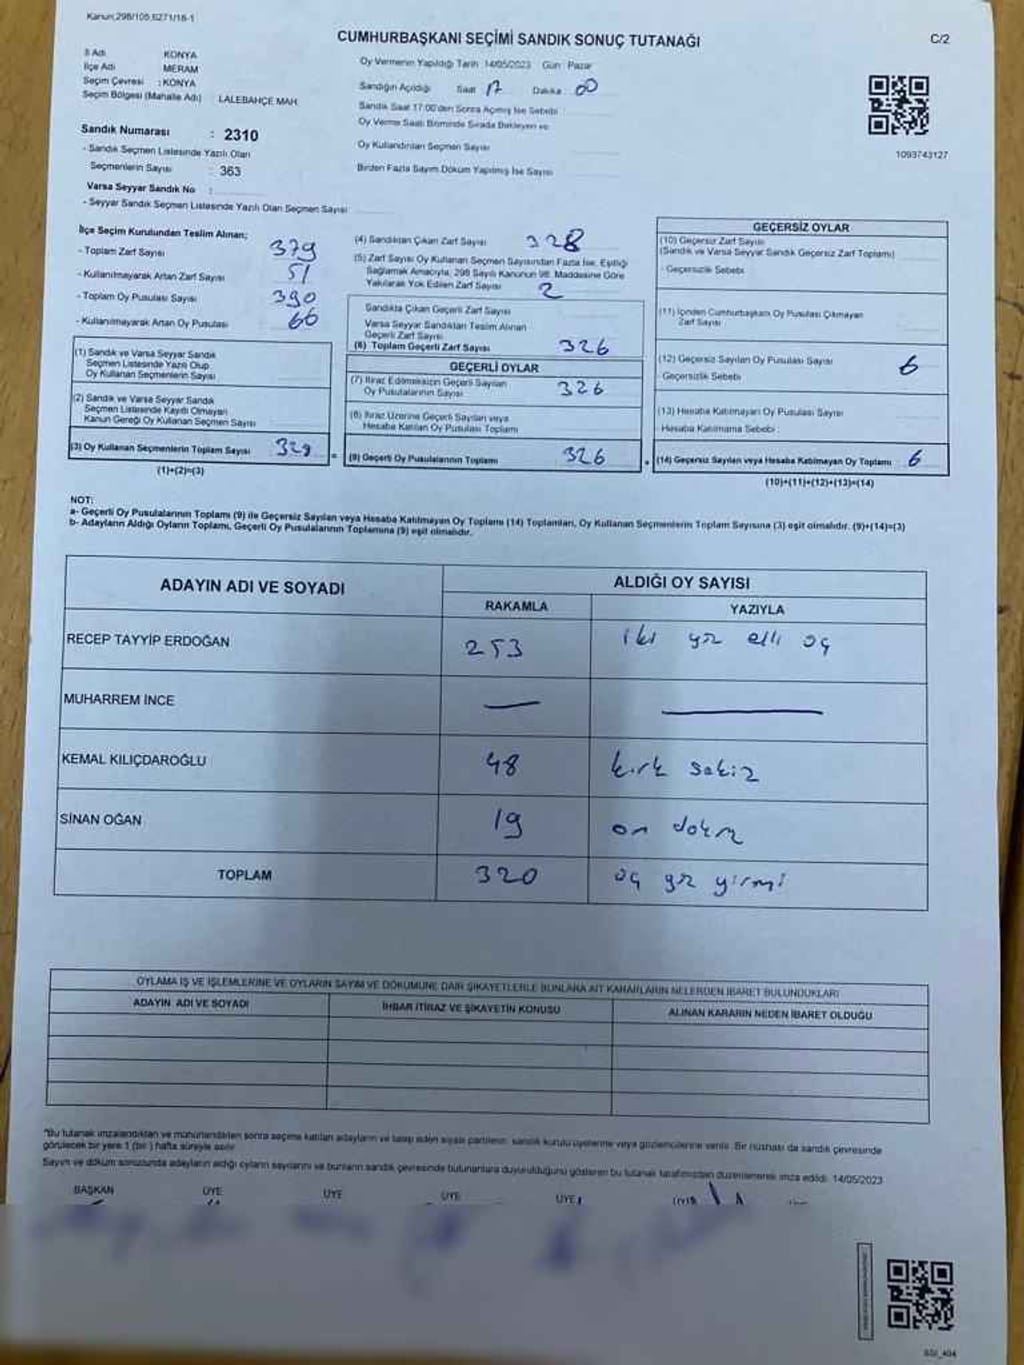 Kanun:298/105,6271/16-1
CUMHURBAŞKANI SEÇİMİ SANDIK SONUÇ TUTANAĞI
C/2
İl Adı KONYA
İlçe Adı MERAM
Seçim Çevresi : KONYA
Seçim Bölgesi (Mahalle Adı) LALEBAHÇE MAH.
Oy Vermenin Yapıldığı Tarih 14/05/2023 Gün: Pazar
Sandığın Açıldığı Saat 17 Dakika 00
Sandık Saat 17:00'den Sonra Açılmış İse Sebebi
Oy Verme Saati Bitiminde Sırada Bekleyen ve
Oy Kullandırılan Seçmen Sayısı
Birden Fazla Sayım Döküm Yapılmış İse Sayısı
1093743127
Sandık Numarası : 2310
- Sandık Seçmen Listesinde Yazılı Olan
Seçmenlerin Sayısı : 363
Varsa Seyyar Sandık No :
- Seyyar Sandık Seçmen Listesinde Yazılı Olan Seçmen Sayısı
İlçe Seçim Kurulundan Teslim Alınan;
- Toplam Zarf Sayısı 379
- Kullanılmayarak Artan Zarf Sayısı 51
- Toplam Oy Pusulası Sayısı 390
- Kullanılmayarak Artan Oy Pusulası 66
(1) Sandık ve Varsa Seyyar Sandık
Seçmen Listesinde Yazılı Olup
Oy Kullanan Seçmenlerin Sayısı
(2) Sandık ve Varsa Seyyar Sandık
Seçmen Listesinde Kayıtlı Olmayan
Kanun Gereği Oy Kullanan Seçmen Sayısı
(3) Oy Kullanan Seçmenlerin Toplam Sayısı 329
(1)+(2)=(3)
(4) Sandıktan Çıkan Zarf Sayısı 328
(5) Zarf Sayısı Oy Kullanan Seçmen Sayısından Fazla İse, Eşitliği
Sağlamak Amacıyla, 298 Sayılı Kanunun 98. Maddesine Göre
Yakılarak Yok Edilen Zarf Sayısı 2
Sandıkta Çıkan Geçerli Zarf Sayısı
Varsa Seyyar Sandıktan Teslim Alınan
Geçerli Zarf Sayısı
(6) Toplam Geçerli Zarf Sayısı 326
GEÇERLİ OYLAR
(7) İtiraz Edilmeksizin Geçerli Sayılan
Oy Pusulalarının Sayısı 326
(8) İtiraz Üzerine Geçerli Sayılan veya
Hesaba Katılan Oy Pusulası Toplamı
= (9) Geçerli Oy Pusulalarının Toplamı 326
GEÇERSİZ OYLAR
(10) Geçersiz Zarf Sayısı
(Sandık ve Varsa Seyyar Sandık Geçersiz Zarf Toplamı)
- Geçersizlik Sebebi
(11) İçinden Cumhurbaşkanı Oy Pusulası Çıkmayan
Zarf Sayısı
(12) Geçersiz Sayılan Oy Pusulası Sayısı 6
- Geçersizlik Sebebi
(13) Hesaba Katılmayan Oy Pusulası Sayısı
- Hesaba Katılmama Sebebi :
+ (14) Geçersiz Sayılan veya Hesaba Katılmayan Oy Toplamı 6
(10)+(11)+(12)+(13)=(14)
NOT:
a- Geçerli Oy Pusulalarının Toplamı (9) ile Geçersiz Sayılan veya Hesaba Katılmayan Oy Toplamı (14) Toplamları, Oy Kullanan Seçmenlerin Toplam Sayısına (3) eşit olmalıdır. (9)+(14)=(3)
b- Adayların Aldığı Oyların Toplamı, Geçerli Oy Pusulalarının Toplamına (9) eşit olmalıdır.
ADAYIN ADI VE SOYADI ALDIĞI OY SAYISI
RAKAMLA YAZIYLA
RECEP TAYYİP ERDOĞAN 253 iki yüz elli üç
MUHARREM İNCE —
KEMAL KILIÇDAROĞLU 48 kırk sekiz
SİNAN OĞAN 19 on dokuz
TOPLAM 320 üç yüz yirmi
OYLAMA İŞ VE İŞLEMLERİNE VE OYLARIN SAYIM VE DÖKÜMÜNE DAİR ŞİKAYETLERLE BUNLARA AİT KARARLARIN NELERDEN İBARET BULUNDUKLARI
ADAYIN ADI VE SOYADI İHBAR İTİRAZ VE ŞİKAYETİN KONUSU ALINAN KARARIN NEDEN İBARET OLDUĞU
*Bu tutanak imzalandıktan ve mühürlendikten sonra seçime katılan adayların ve talep eden siyasi partilerin sandık kurulu üyelerine veya gözlemcilerine verilir. Bir nüshası da sandık çevresinde
görülecek bir yere 1 (bir) hafta süreyle asılır.
Sayım ve döküm sonucunda adayların aldığı oyların sayılarını ve bunların sandık çevresinde bulunanlara duyurulduğunu gösteren bu tutanak tarafımızdan düzenlenerek imza edildi. 14/05/2023
BAŞKAN ÜYE ÜYE ÜYE ÜYE ÜYE